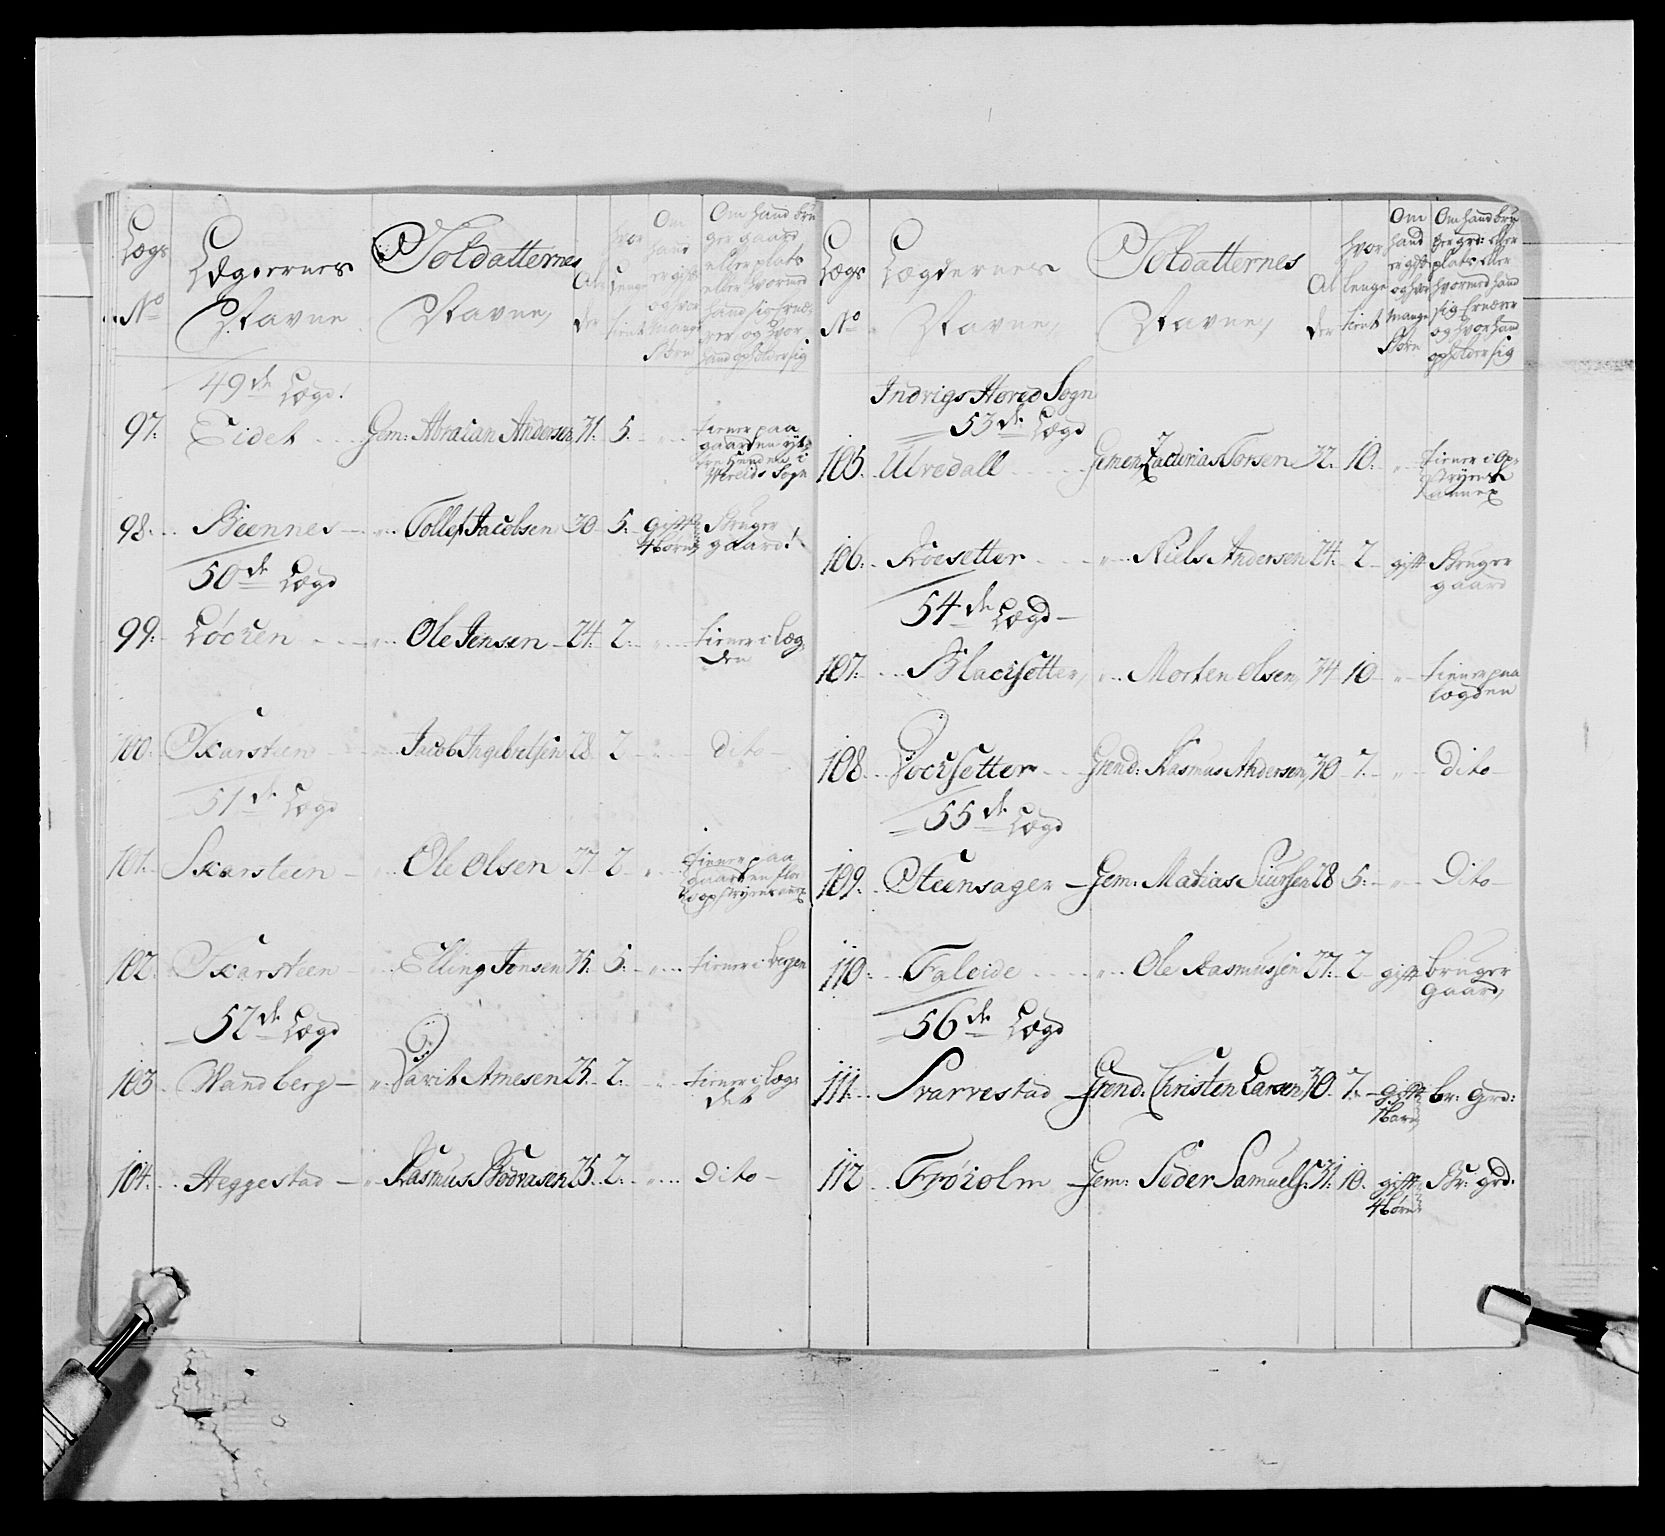 Lægs No
Lægdernes Navne
Soldatternes Navne
Alder
hvor lenge tient
Om hand er gift og hvor mange Børn
Om hand bruger gaard eller plats eller hvormed hand sig Ernærer og hvor hand opholder sig
49de Lægd
97: Eidet Gem: Abraian Andersen 31. 5. " tiener paa gaarden i Sogn
98. Bennes " Tollef Jacobsen 30 5. gift 4 børn Bruger gaard
50de Lægd
99. Løcken " Ole Jensen 24. 2. " tiener i Lægden
100. Skarsteen " Jacob Ingebretsen 28 2 " Dito
51de Lægd
101. Skarsteen " Ole Olsen 27 2 " tiener paa gaarden
102. Skarsteen " Elling Jensen 35. 5. " tiener i Bergen
52de Lægd
103 Wandberg " Davit Arnesen 25. 2. " tiener i Lægdet
104. Heggestad " Rasmus 25. 2. " Dito
Lægs No
Lægdernes Navne
Soldatternes Navne
Alder
hvor lenge tient
Om hand er gift og hvor mange Børn
Om hand bruger grd: eller plats eller hvormed hand sig Ernærer og hvor hand opholder sig
Indvigs Hored Sogn
53de Lægd
105. Ulvedall Gemen Zacharias Torsen 32. 10. " tiener i Opstryens annex
106. Roesetter " Niels Andersen 24. 2 gift Bruger gaard
54de Lægd
107. Blacksetter " Morten Olsen 34 10 " tiener paa Lægden
108. Locksetter Grend: Rasmus Andersen 30 7. " Dito
55de Lægd
109. Steensager Gem: Matias Siursen 28 5. " Dito
110. Faleide " Ole Rasmusen 27. 2 gift bruger gaard
56de Lægd
111. Svarvestad Grend: Christen Larsen 30. 7. gift 1 barn br: grd:
112 Frøholm Gem: Peder Samuels: 31. 10. gift 4 børn Br: grd.